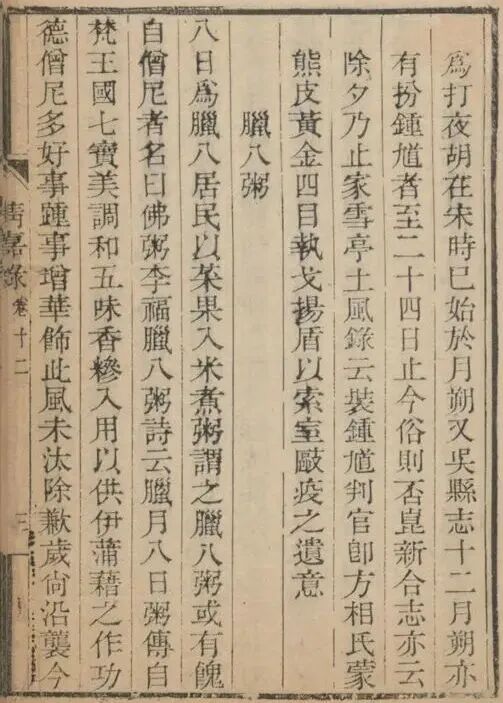 為打夜胡在宋時已始於月朔又吳縣志十二月朔亦
有扮鍾馗者至二十四日止今俗則否崑新合志亦云
除夕乃止家雪亭土風錄云裝鍾馗判官卽方相氏蒙
熊皮黃金四目執戈揚盾以索室毆疫之遺意
臘八粥
八日為臘八居民以菜果入米煮粥謂之臘八粥或有餽
自僧尼者名曰佛粥李福臘八粥詩云臘月八日粥傳自
梵王國七寶美調和五味香糝入用以供伊蒲藉之作功
德僧尼多好事踵事增華飾此風未汰除歉歲尙沿襲今
清嘉錄 卷十二 三